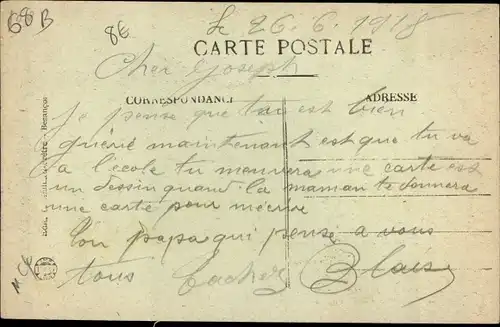 68 B
8E
le 26.6.1918
CARTE POSTALE
Cher Joseph
CORRESPONDANCE
ADRESSE
Je pense que tu est bien
guérié maintenant est que tu va
a l'école tu une carte est
un dessin quand la maman te donnera
une carte pour mécrire
Ton papa qui pense a vous
tous Blais